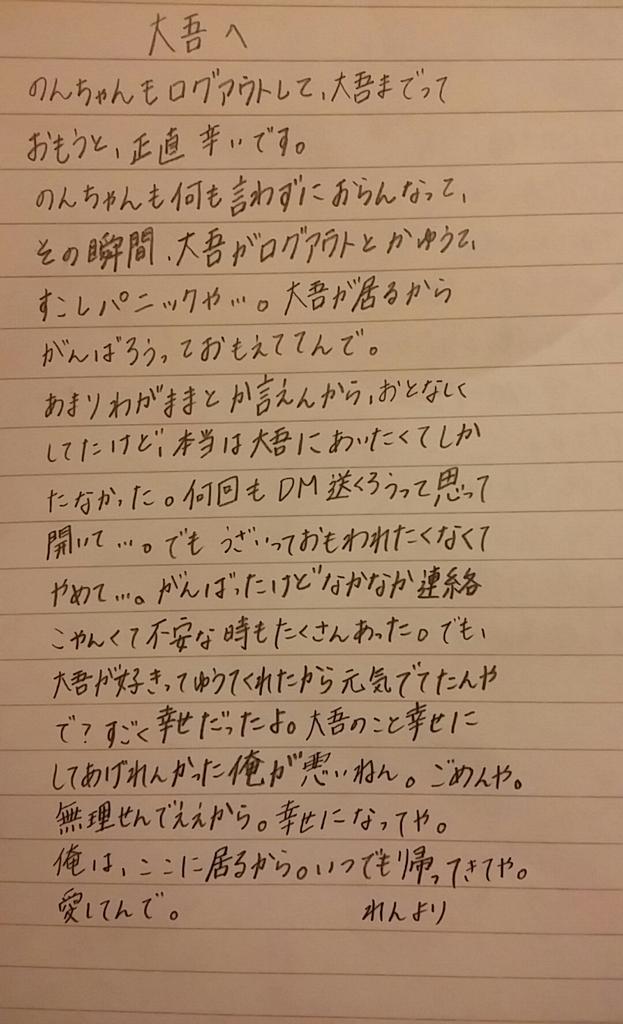 大吾へ
のんちゃんもログアウトして、大吾までって
おもうと、正直辛いです。
のんちゃんも何も言わずにおらんなって、
その瞬間、大吾がログアウトとかゆうて、
すこしパニックや…。大吾が居るから
がんばろうっておもえててんで。
あまりわがままとか言えんから、おとなしく
してたけど、本当は大吾にあいたくてしか
たなかった。何回もDM送くろうって思って
開いて…。でもうざいっておもわれたくなくて
やめて…。がんばったけどなかなか連絡
こやんくて不安な時もたくさんあった。でも、
大吾が好きってゆうてくれたから元気でてたんや
で?すごく幸せだったよ。大吾のこと幸せに
してあげれんかった俺が悪いねん。ごめんや。
無理せんでええから。幸せになってや。
俺は、ここに居るから。いつでも帰ってきてや。
愛してんで。 れんより